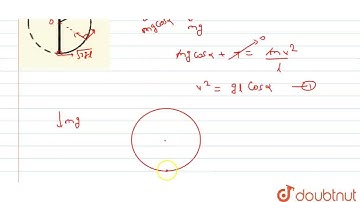 O
√3gl
mg cosα
mg
mg cosα + T = mv²/l
0
v² = gl cosα —①
↓mg
doubtnut